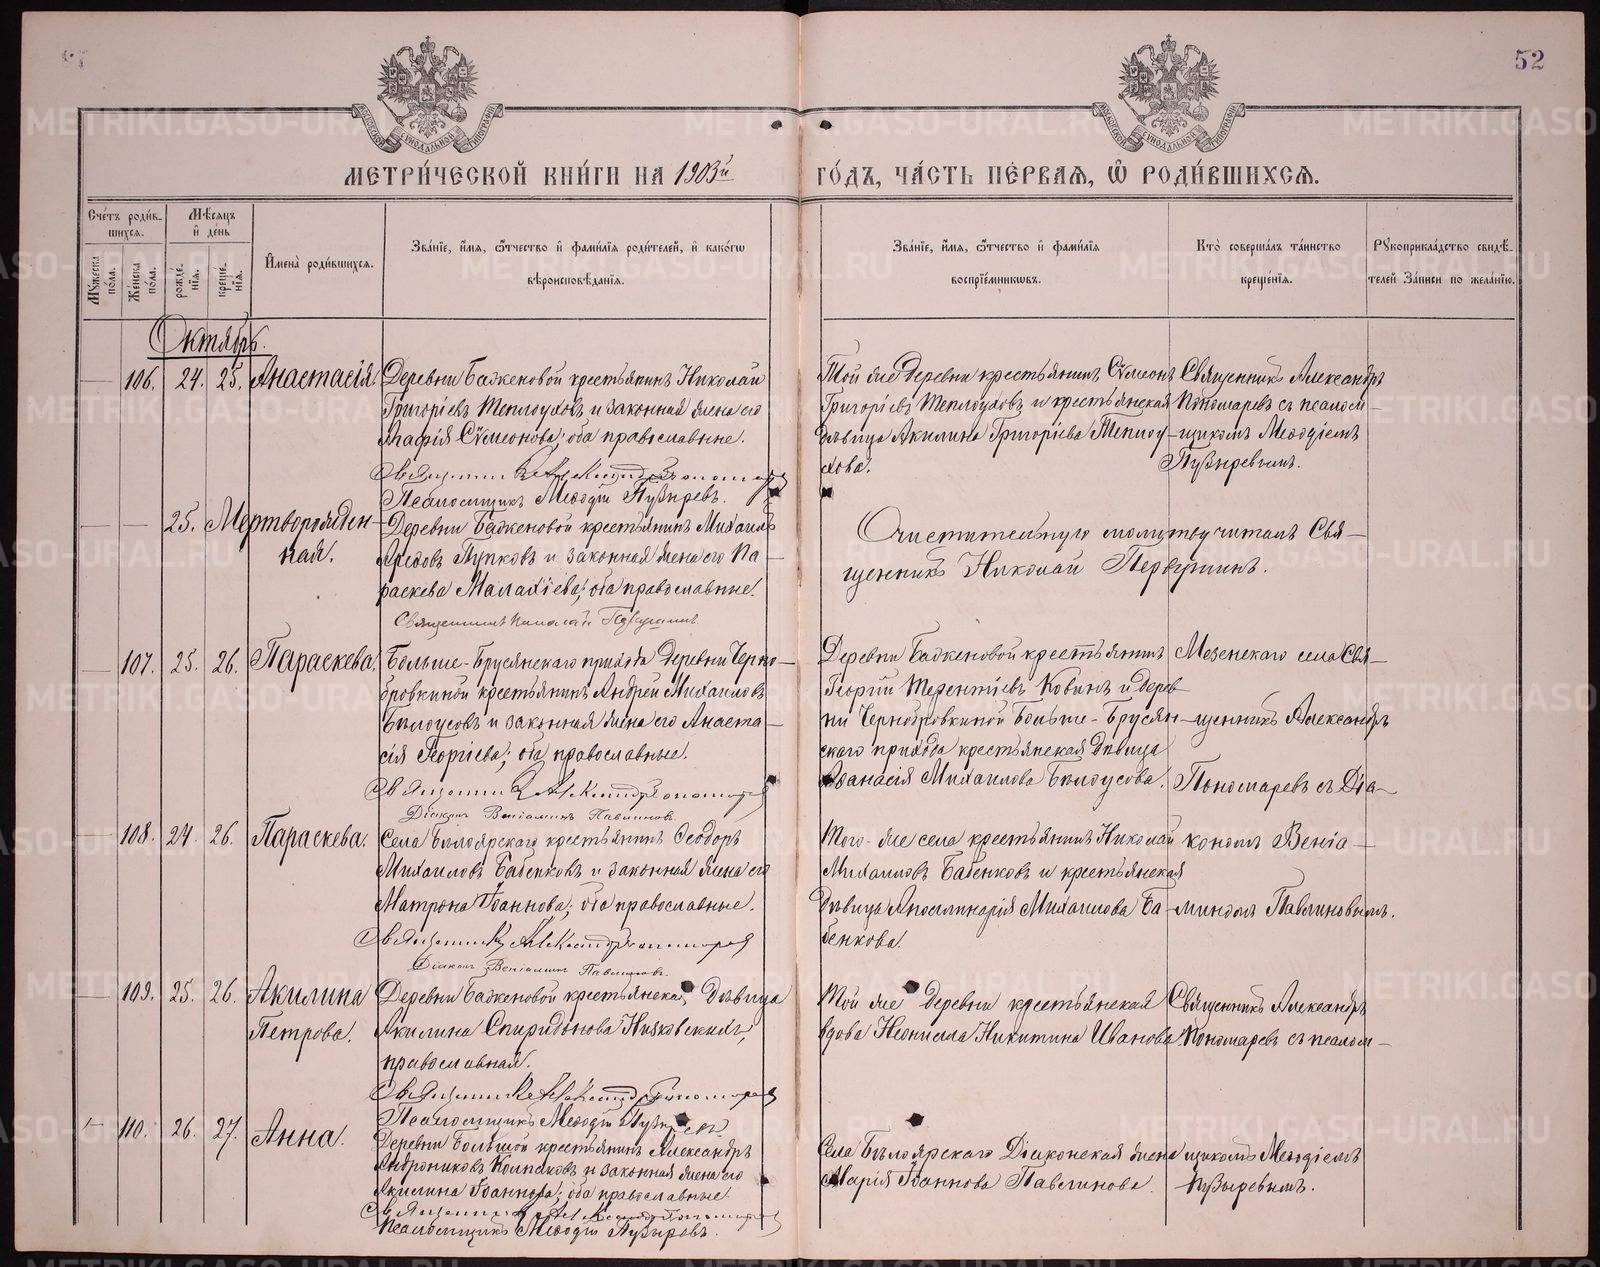 52
МЕТРИ́ЧЕСКОЙ КНИ́ГИ НА 1903й ГО́ДЪ, ЧА́СТЬ ПЕ́РВАѦ, Ѡ҆ РОДИ́ВШИХСѦ.
Сче́тъ роди́в-
шихсѧ.
Мꙋ́жеска по́ла.
Же́нска по́ла.
Мѣ́сѧцъ и҆ де́нь
рожде́нїѧ.
креще́нїѧ.
И҆мена̀ роди́вшихсѧ.
Зва́нїе, и҆́мѧ, ѻ҆́тчество и҆ фами́лїѧ роди́телей, и҆ како́гѡ
вѣроисповѣ́данїѧ.
Зва́нїе, и҆́мѧ, ѻ҆́тчество и҆ фами́лїѧ
воспрїе́мникѡвъ.
Кто̀ соверша́лъ та́инство
креще́нїѧ.
Рꙋкоприкла́дство свидѣ́-
телей За́писи по жела́нїю.
Октябрь.
106. 24. 25. Анастасія.
Деревни Баженовой крестьянинъ Николай
Григорьевъ Теплоуховъ и законная жена его
Агафія Сѵмеонова; оба православные.
Священникъ Александръ Пономаревъ
Псаломщикъ Меѳодій Пузыревъ.
Той же деревни крестьянинъ Сѵмеонъ
Григорьевъ Теплоуховъ и крестьянская
дѣвица Акилина Григоріева Теплоу-
хова.
Священникъ Александръ
Пономаревъ съ псалом-
щикомъ Меѳодіемъ
Пузыревымъ.
25. Мертворожден-
ная.
Деревни Баженовой крестьянинъ Михаилъ
Пупковъ и законная жена его Па-
раскева Малахіева; оба православные.
Священникъ Николай Первушинъ
Очистительную молитву читалъ Свя-
щенникъ Николай Первушинъ.
107. 25. 26. Параскева.
Больше-Брусянскаго прихода деревни Черно-
бровкиной крестьянинъ Андрей Михаиловъ
Бѣлоусовъ и законная жена его Анаста-
сія Георгіева; оба православные.
Священникъ Александръ Пономаревъ
Діаконъ Веніаминъ Павлиновъ.
Деревни Баженовой крестьянинъ
Георгій Терентіевъ Ковинъ и дерев-
ни Чернобровкиной Больше-Брусян-
скаго прихода крестьянская дѣвица
Аѳанасія Михаилова Бѣлоусова.
Мезенскаго села Свя-
щенникъ Александръ
Пономаревъ съ Діа-
108. 24. 26. Параскева.
Села Бѣлоярскаго крестьянинъ Ѳеодоръ
Михаиловъ Бабенковъ и законная жена его
Матрона Іоаннова; оба православные.
Священникъ Александръ Пономаревъ
Діаконъ Веніаминъ Павлиновъ.
Того-же села крестьянинъ Николай
Михаиловъ Бабенковъ и крестьянская
дѣвица Аполлинарія Михаилова Ба-
бенкова.
кономъ Веніа-
миномъ Павлиновымъ.
109. 25. 26. Акилина
Петрова.
Деревни Баженовой крестьянская дѣвица
Акилина Спиридонова
православная.
Священникъ Александръ Пономаревъ
Псаломщикъ Меѳодій Пузыревъ.
Той же деревни крестьянская
вдова Неонила Никитина Иванова.
Священникъ Александръ
Пономаревъ съ псалом-
110. 26. 27. Анна.
Деревни Большой крестьянинъ Александръ
Андрониковъ Колпаковъ и законная жена его
Акилина Іоаннова; оба православные.
Священникъ Александръ Пономаревъ
Псаломщикъ Меѳодій Пузыревъ.
Села Бѣлоярскаго Діаконская жена
Марія Іоаннова Павлинова.
щикомъ Меѳодіемъ
Пузыревымъ.
METRIKI.GASO-URAL.RU